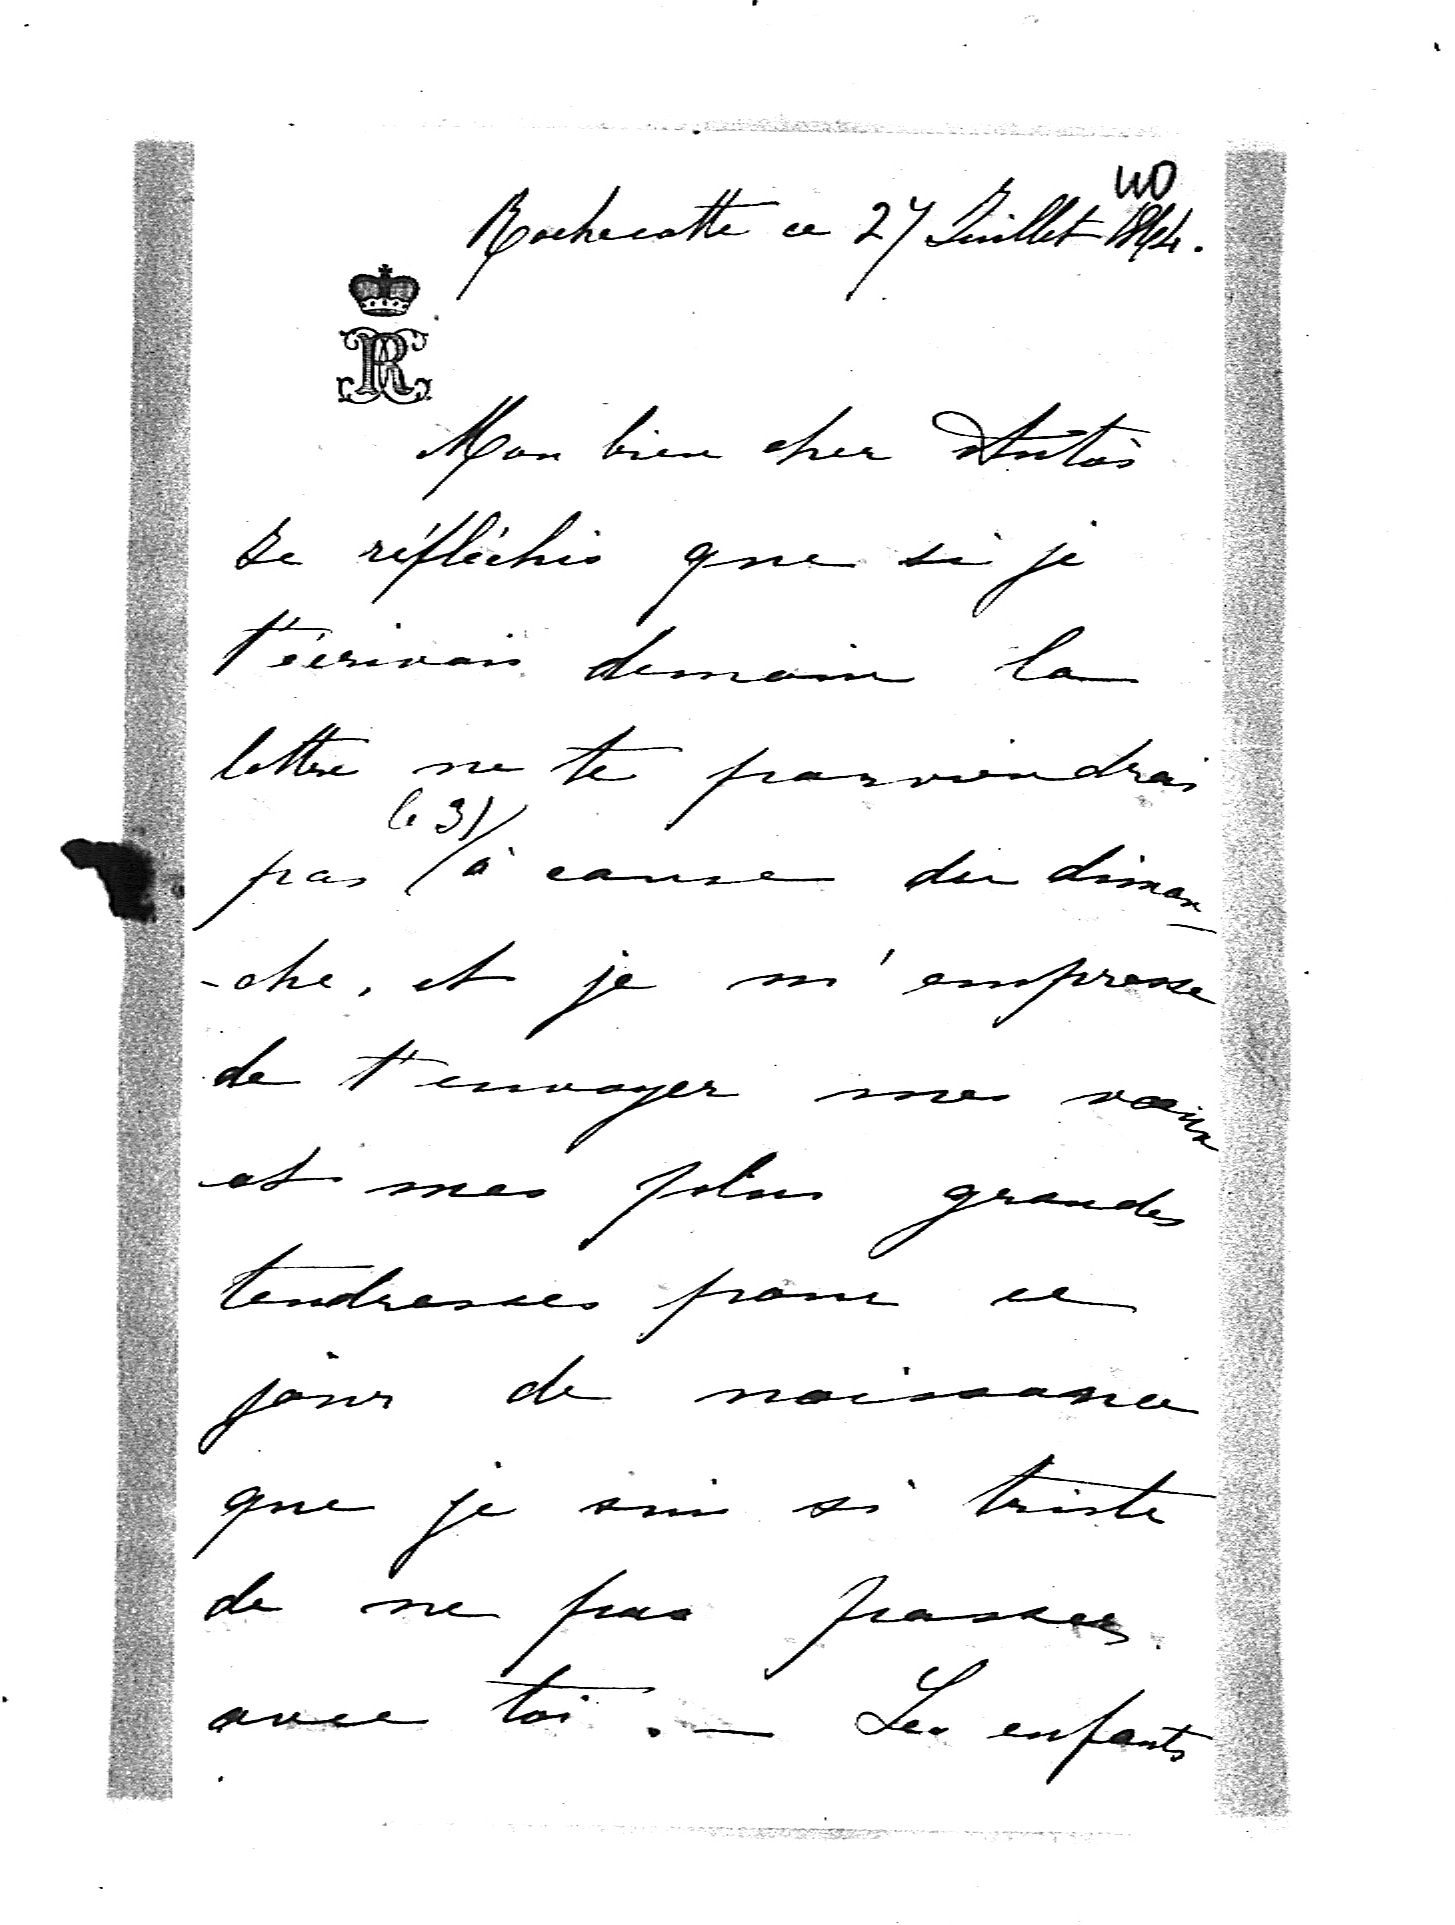 40
Rochecotte ce 27 Juillet 1864.
R
Mon bien cher Antoś
Je réfléchis que si je
t'écrivais demain la
lettre ne te parviendrai
le 31
pas à cause du diman
-che, et je m'empresse
de t'envoyer mes vœux
et mes plus grandes
tendresses pour ce
jour de naissance
que je suis si triste
de ne pas passer
avec toi. — Les enfants